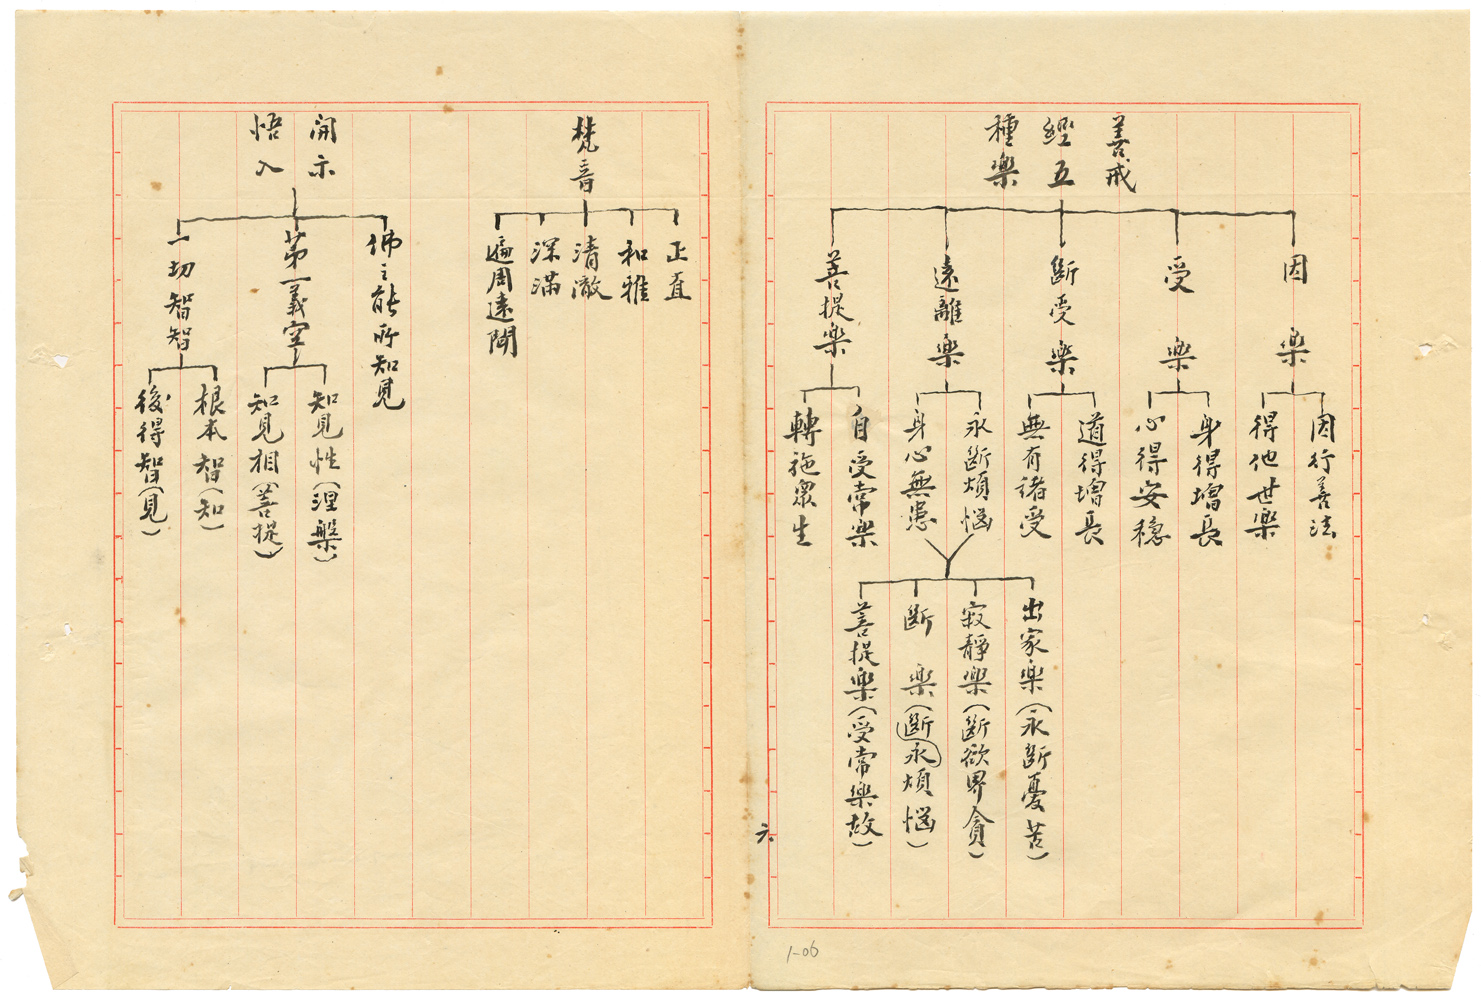 善戒
經五
種樂
因樂
因行善法
得他世樂
受樂
身得增長
心得安穩
斷受樂
道得增長
無有諸受
遠離樂
永斷煩惱
身心無患
出家樂(永斷憂苦)
寂靜樂(斷欲界貪)
斷樂(斷永煩惱)
菩提樂(受常樂故)
菩提樂
自受常樂
轉施眾生
六
梵音
正直
和雅
清澈
深滿
遍周遠聞
開示
悟入
佛之能所知見
第一義空
知見性(涅槃)
知見相(菩提)
一切智智
根本智(知)
後得智(見)
1-06